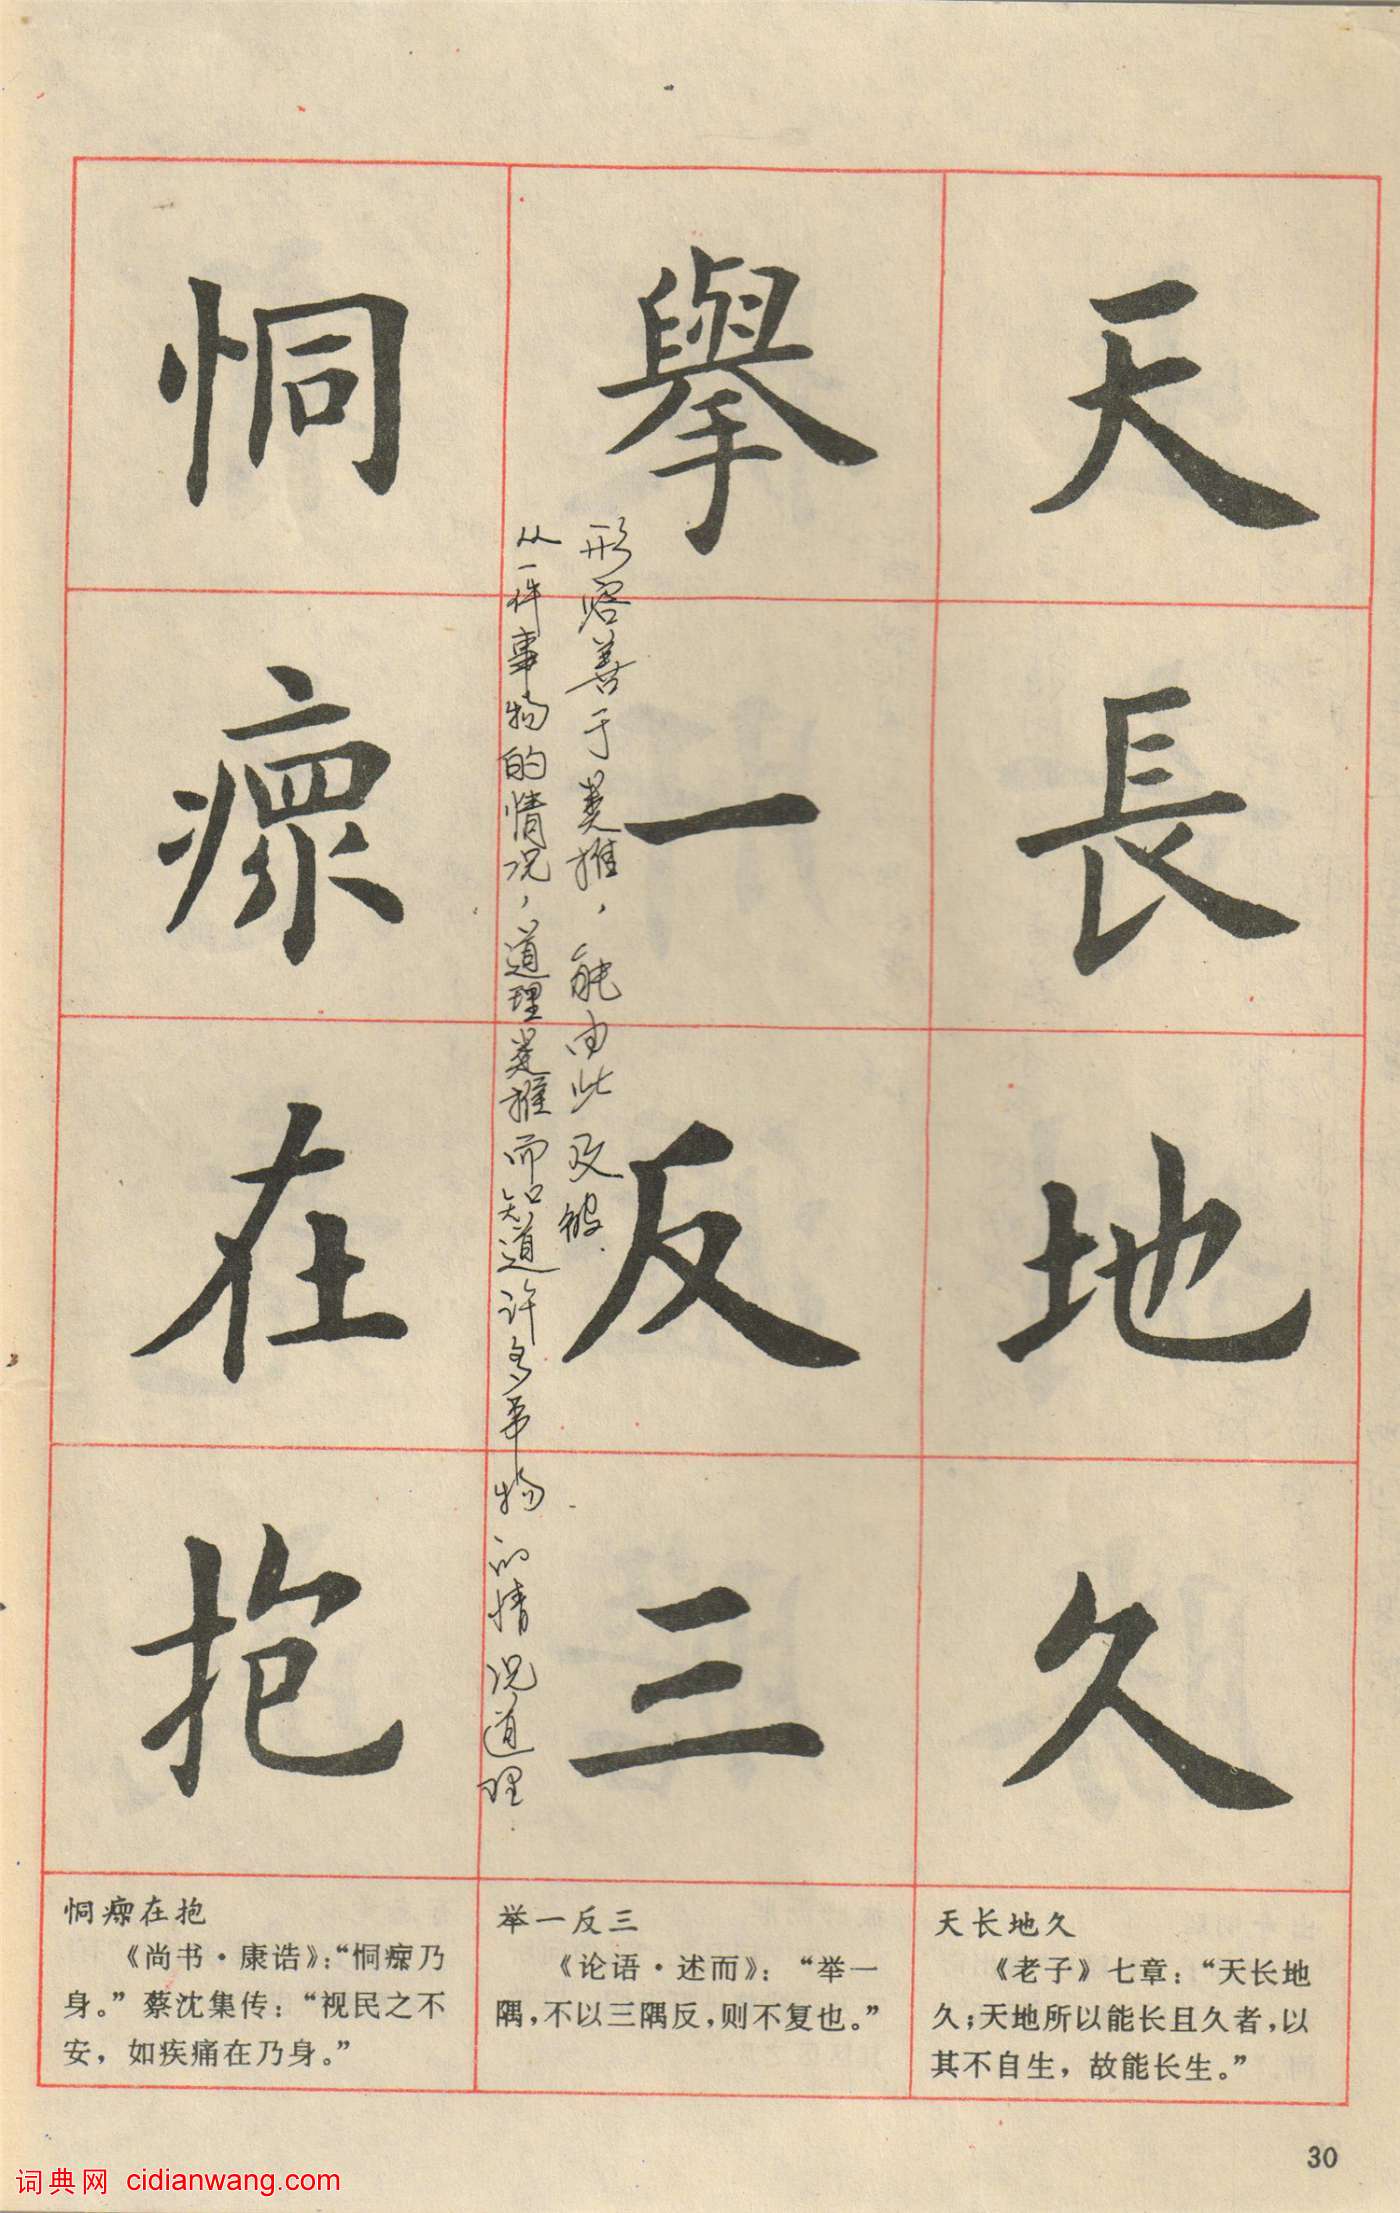 天長地久
舉一反三
形容善于类推，能由此及彼.
从一件事物的情况，道理类推而知道许多事物的情况道理.
恫瘝在抱
天长地久
《老子》七章：“天长地
久；天地所以能长且久者，以
其不自生，故能长生。”
举一反三
《论语·述而》：“举一
隅，不以三隅反，则不复也。”
恫瘝在抱
《尚书·康诰》：“恫瘝乃
身。”蔡沈集传：“视民之不
安，如疾痛在乃身。”
30
词典网 cidianwang.com